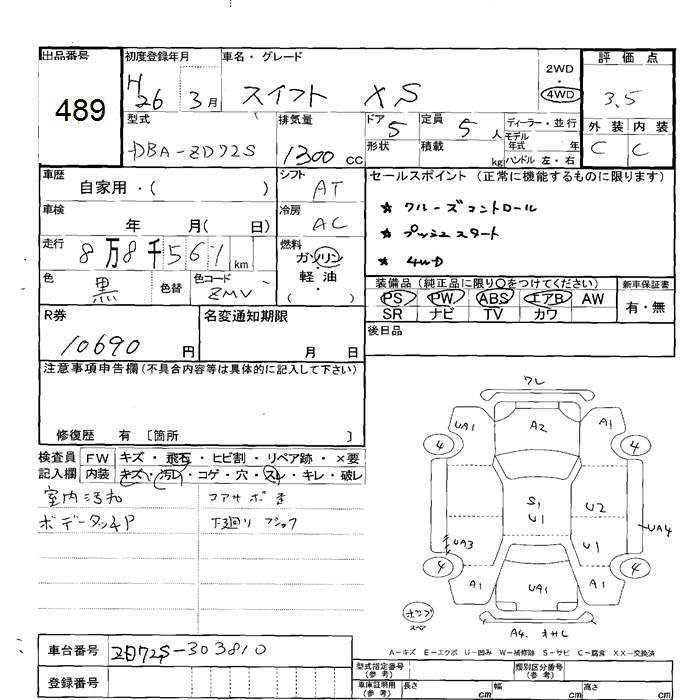 出品番号
489
初度登録年月
H26 3月
車名・グレード
スイフト XS
2WD
4WD
評価点
3.5
外装 内装
C C
型式
DBA-ZD72S
排気量
1300 cc
ドア 5
形状
定員 5 人
積載 kg
ディーラー・並行
モデル年式 年式
ハンドル 左・右
車歴
自家用・( )
シフト
AT
車検
年 月( 日)
冷房
AC
走行
8万8千561 km
燃料
ガソリン
軽油
( ・ )
色
黒
色替
色コード
ZMV
セールスポイント (正常に機能するものに限ります)
★ クルーズコントロール
★ プッシュスタート
★ 4WD
装備品 (純正品に限り〇をつけてください)
PS PW ABS エアB AW
SR ナビ TV カワ
新車保証書
有・無
後日品
R券
10690 円
名変通知期限
月 日
注意事項申告欄 (不具合内容等は具体的に記入して下さい)
修復歴 有 〔箇所 〕
検査員記入欄
FW キズ・飛石・ヒビ割・リペア跡・×要
内装 キズ・汚レ・コゲ・穴・スレ・キレ・破レ
室内汚れ
コアサポ
下廻り
ワレ
UA1 A2 A1
4 4
S1
U1
U2
UA3 U1 UA4
4 4
A1 UA1 A1
A4.
A-キズ E-エクボ U-凹み W-補修跡 S-サビ C-腐食 XX-交換済
車台番号
ZD72S-303810
登録番号
型式指定番号(参考)
類別区分番号(参考)
車庫証明用(参考) 長さ cm 幅 cm 高さ cm